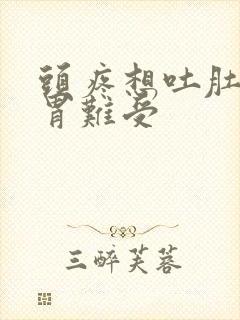 頭疼想吐肚
胃難受
三醉芙蓉